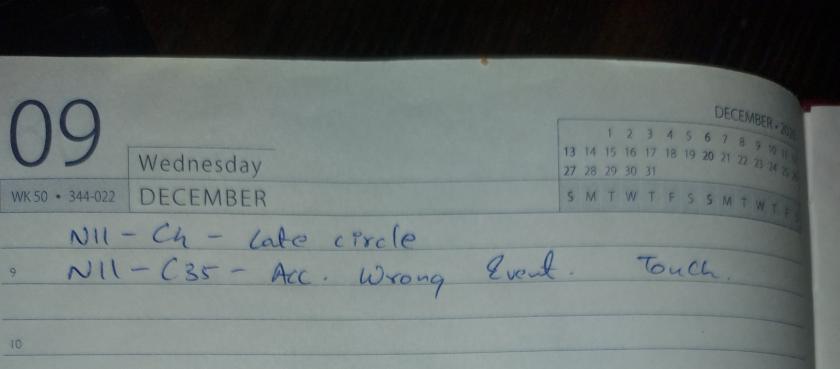 09
Wednesday
WK 50 • 344-022
DECEMBER
DECEMBER • 
1 2 3 4 5 6 7 8 9 10 11
13 14 15 16 17 18 19 20 21 22 23 24 25
27 28 29 30 31
S M T W T F S S M T W T F
N11 - Ch - Late circle
9 N11 - C35 - Acc. Wrong Event. Touch.
10